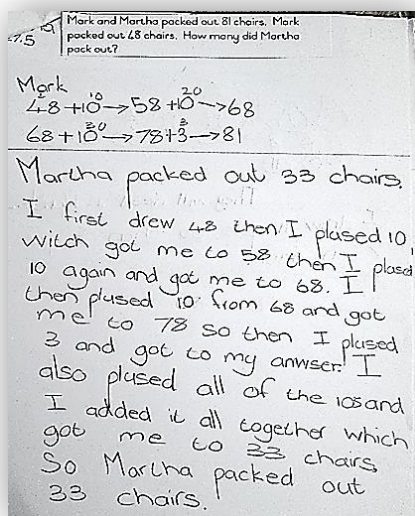 Mark and Martha packed out 81 chairs. Mark
packed out 48 chairs. How many did Martha
pack out?
Mark
48 +10 10→58 +10 20→68
68 +10 30→78+3 3→81
Martha packed out 33 chairs.
I first drew 48 then I plused 10,
witch got me to 58 then I plased
10 again and got me to 68. I
then plused 10 from 68 and got
me to 78 so then I plused
3 and got to my anwser. I
also plused all of the 10s and
I added it all together which
got me to 33 chairs
So Martha packed out
33 chairs.